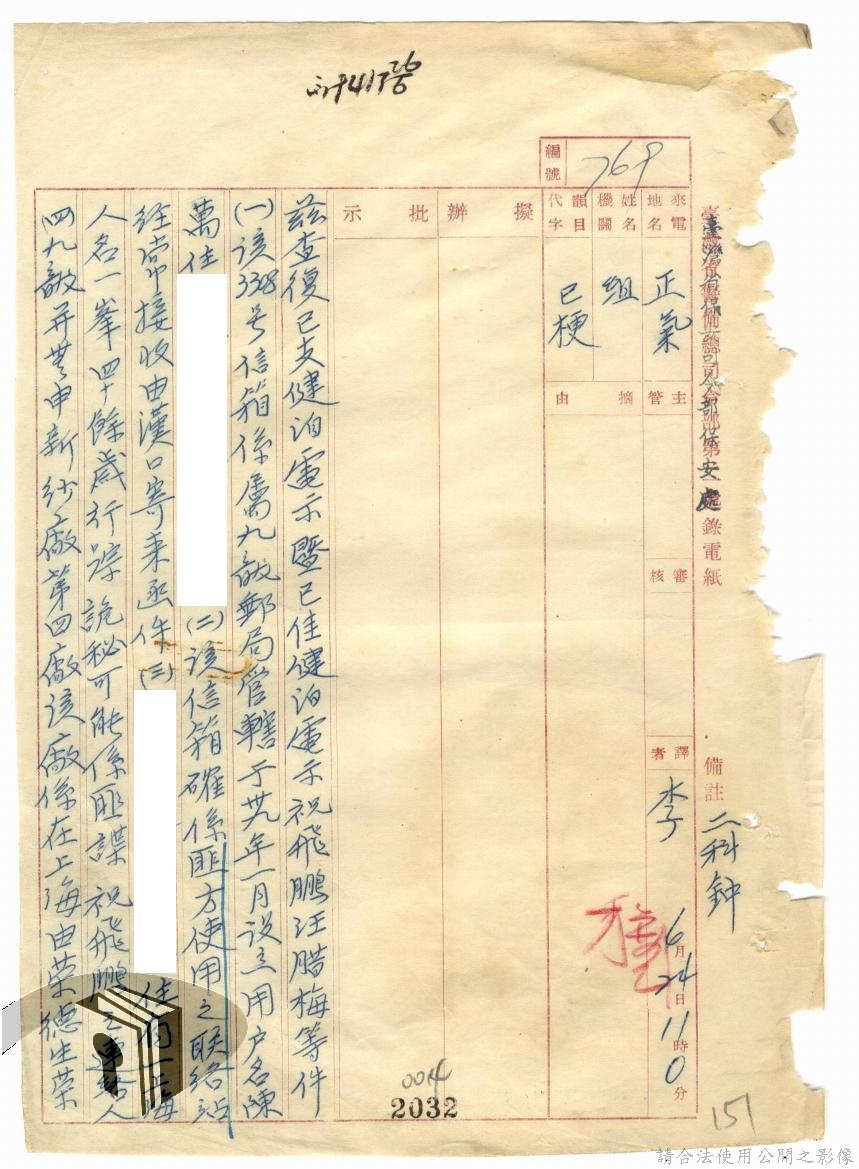 編號
769
臺灣省保安司令部保安處
錄電紙
備註 二科鈡
來電地名
正氣
姓名機關
組
韻目代字
已梗
主管
摘由
審核
譯者
李
6月24日11時0分
擬辦
批示
茲查復已支健泊電示暨已佳健泊電示祝飛鵬汪腊梅等件
(一)該338号信箱係屬九龍郵局管轄于卅九年一月設立用户名陳
萬佳
(二)該信箱確係匪方使用之联络站
经常接收由漢口寄来函件(三)
住有一上海
人名一峯四十餘歲行踪詭秘可能係匪諜 祝飛鵬之連絡人
四九
并無申新紗廠第四廠該廠係在上海由荣德生荣
0014
2032
151
請合法使用公開之影像